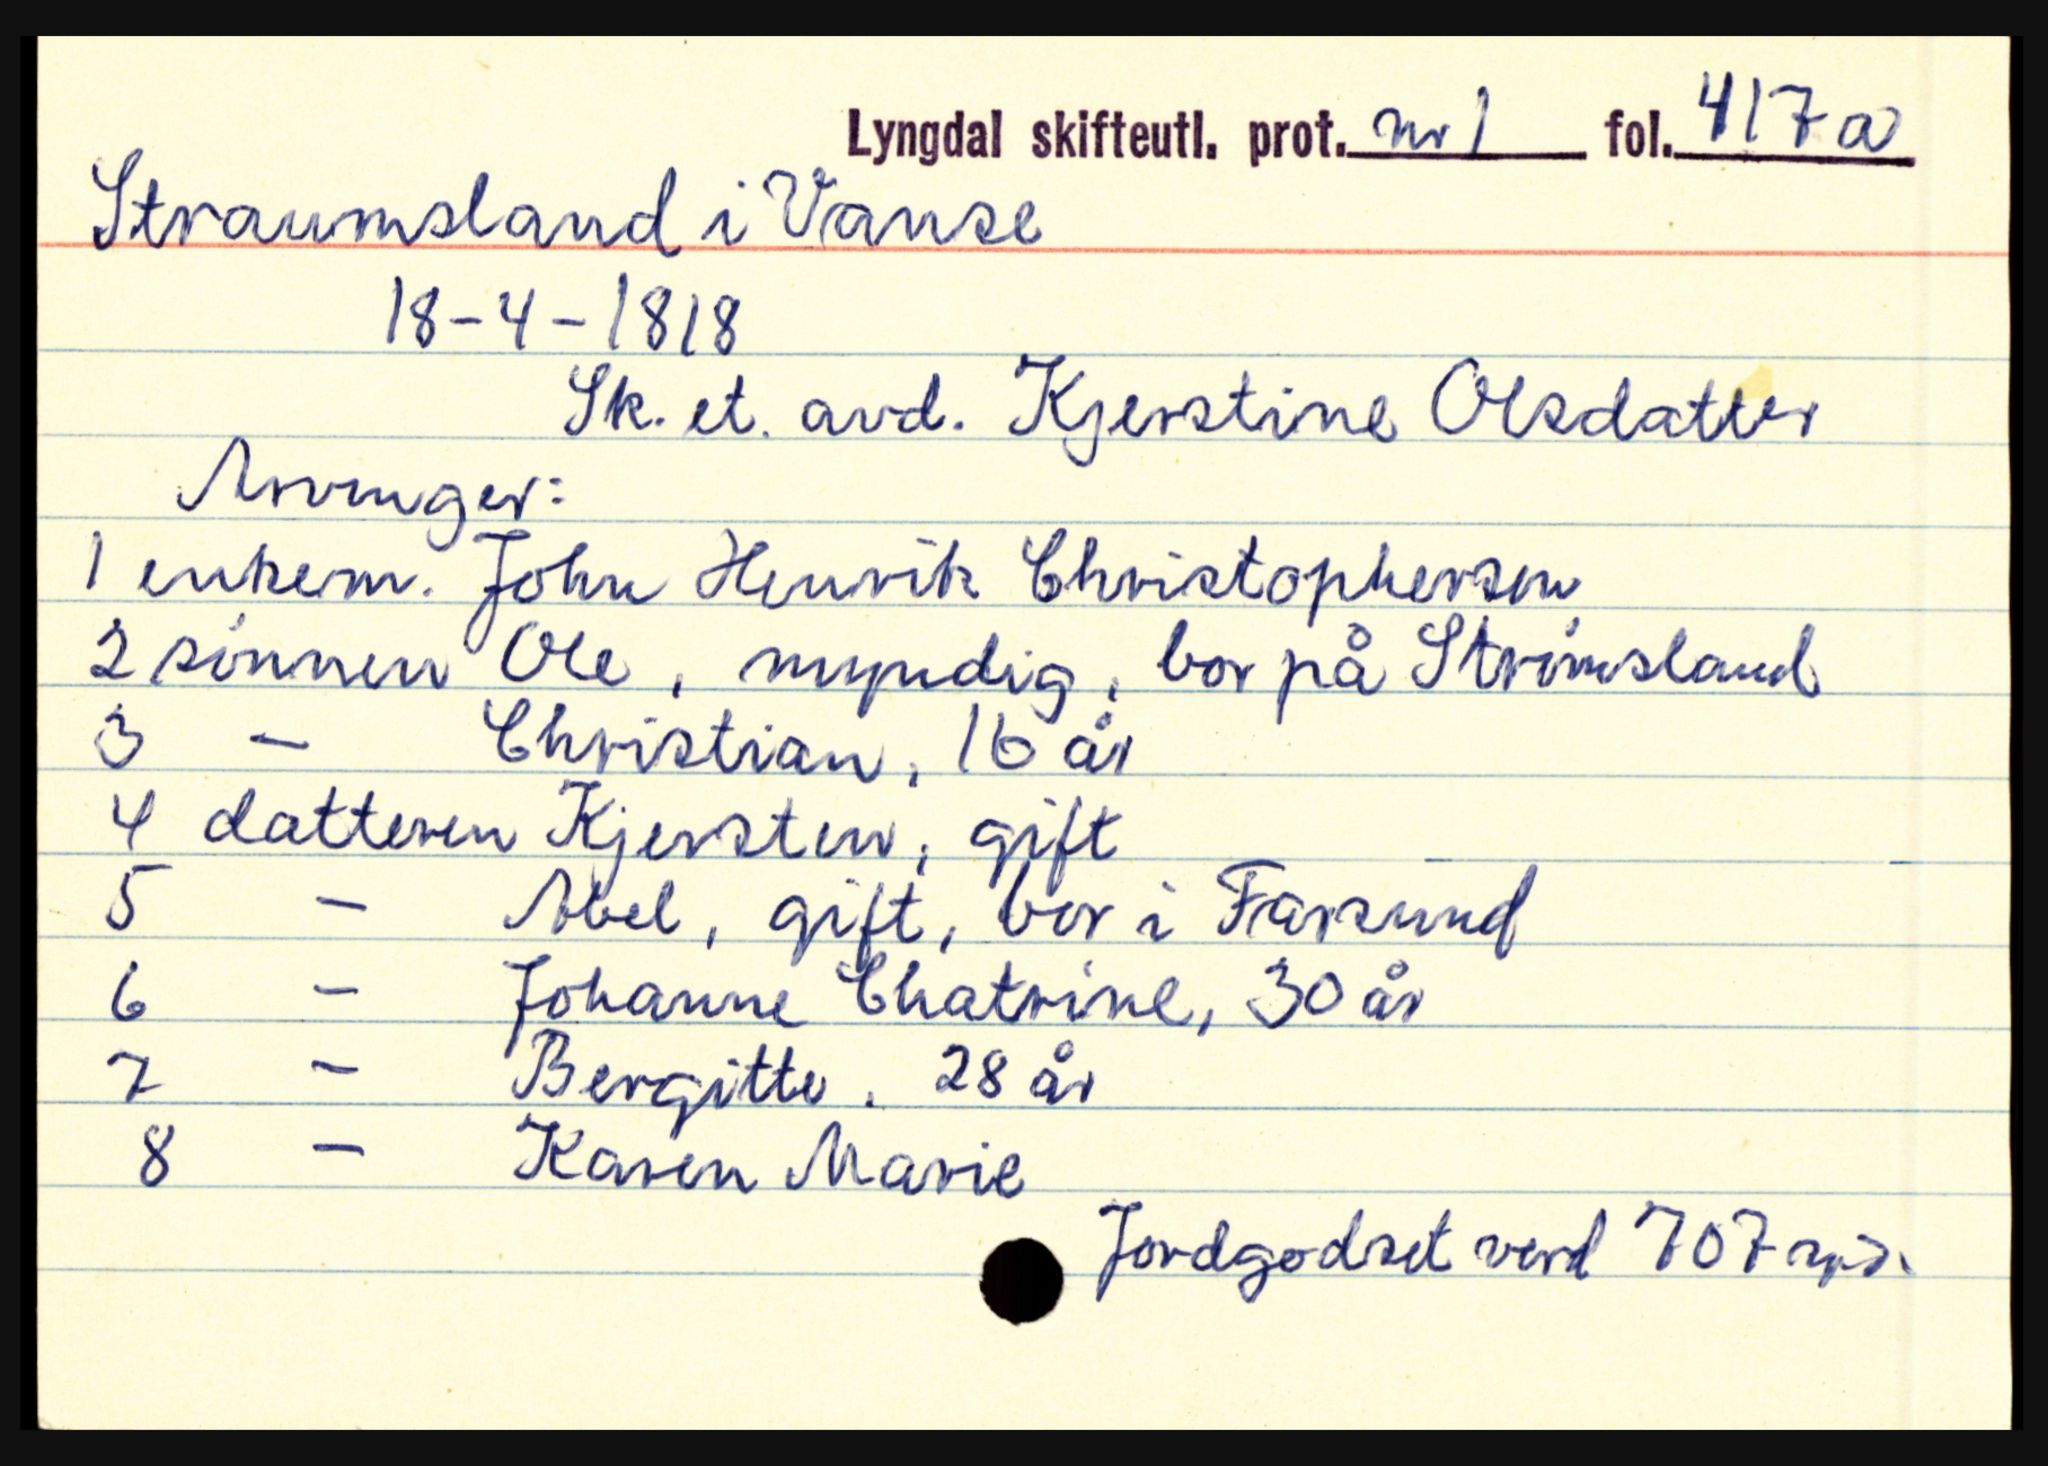 Lyngdal skifteutl. prot. nr 1 fol. 417a
Straumsland i Vanse
18-4-1818
Sk. et. avd. Kjerstine Olsdatter
Arvinger:
1 enkem. John Henrik Christophersen
2 sønnen Ole, myndig, bor på Strømsland
3 - Christian, 16 år
4 datteren Kjersten, gift
5 - Abel, gift, bor i Farsund
6 - Johanne Chatrine, 30 år
7 - Bergitte. 28 år
8 - Karen Marie
Jordgodset verd 707 spd.